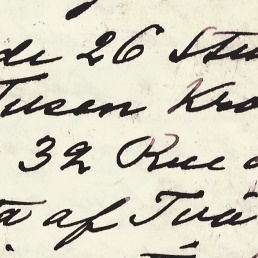 de 26 Stu
Tusen Kro
32 Rue d
a af Två